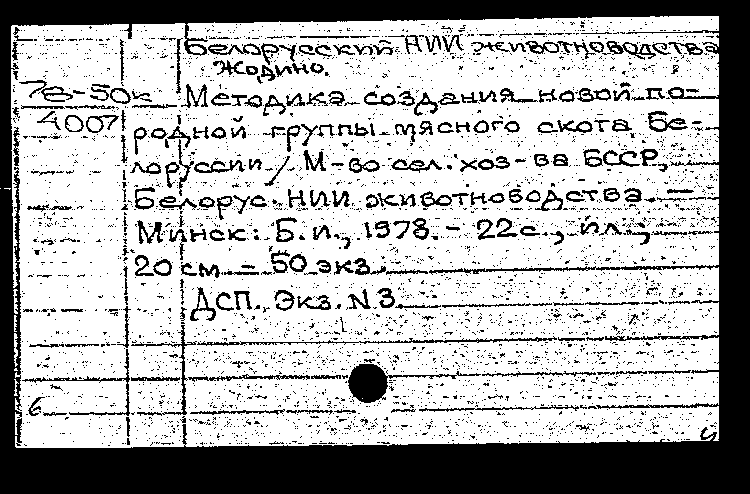 Белорусский НИИ животноводства
Жодино.
78-50к Методика создания новой по-
4007 родной группы мясного скота Бе-
лоруссии / М-во сел. хоз-ва БССР,
Белорус. НИИ животноводства. —
Минск: Б.и., 1978. - 22с., ил.;
20 см. - 50 экз.
ДСП. Экз. N 3.
6